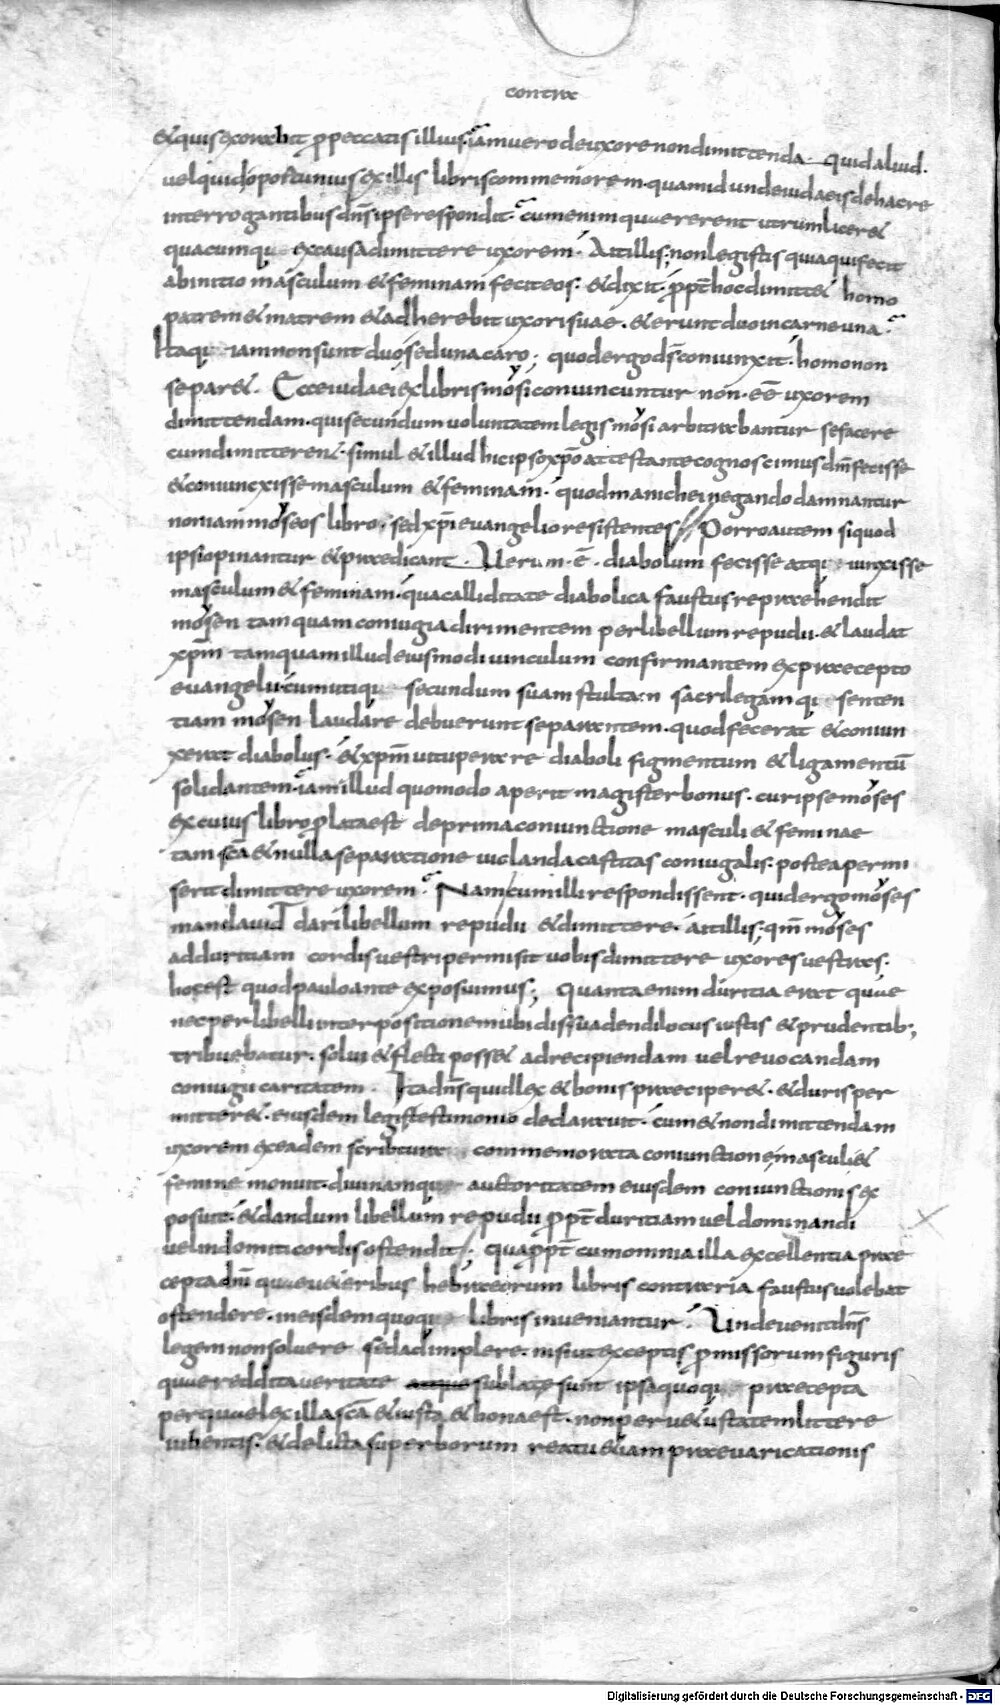 contra
&quisexorabit ꝓpeccatisillius. iamuerodeuxorenondimittenda quidaliud.
uelquidoportuniusexillis libriscommemorem. quamidundeiudaeisdehacre
interrogantibus dn̄sipserespondit. cumenim quaererent utrumlicer&
quacumque excausadimittere uxorem. Aitillis; nonlegistis quiaquifecit
abinitio masculum &feminam feciteos. &dixit. ꝓpt̄hocdimitt& homo
patrem&matrem &adherebit uxorisuae. &erunt duoincarneuna.
Itaque iamnonsunt duo sedunacaro; quodergods̄ coniunxit. homonon
separ&. Ecceiudaei exlibrismosi conuincuntur non. eē uxorem
dimittendam. quisecundum uoluntatemlegis mosi arbitrabantur sefacere
cumdimitteren&. simul &illud hicipsoxp̄o attestantecognoscimus dm̄fecisse
&coniunxissemasculum &feminam. quodmanicheinegando damnantur
noniam moseos libro. sedxp̄i euangelioresistentes // Porroautem siquod
ipsiopinantur &praedicant. Uerum. ē. diabolum fecisse atque iunxisse
masculum&feminam. quacalliditate diabolica faustusreprehendit
mosen tamquam coniugiadirimentem perlibellumrepudii. &laudat
xp̄m tamquamilludeiusmodiuinculum confirmantem expraecepto
euangelii. cumutique secundum suamstultam sacrilegamque senten
tiam mosen laudare debueruntseparantem. quodfecerat &coniun
xerat diabolus. &xp̄m uituperare diaboli figmentum &ligamentū
solidantem. iamillud quomodo aperit magisterbonus. curipsemoses
excuius libroꝓlataest deprimaconiunctione masculi&feminae
tam sc̄a&nullaseparatione uiolandacastitas coniugalis. posteapermi
seritdimittere uxorem. Namcumillirespondissent. quidergomoses
mandauit darilibellum repudii &dimittere. aitillis. qm̄ moses
adduritiam cordisuestripermisit uobisdimittere uxoresuestras.
hocest quodpauloante exposuimus; Quantaenimduritia erat quae
necperlibelliinterpositionemubidissuadendilocus iustis &prudentib;
tribuebatur. solui &flecti poss& adrecipiendam uelreuocandam
coniugii caritatem. Itadn̄squidlex &bonis praeciper&. &durisper
mitter&. eiusdem legistestimonio declarauit. cum&nondimittendam
uxorem exeadem scriptura commemorata coniunctione masculi&
femine monuit. diuinamque auctoritatem eiusdem coniunctionisex
posuit. &dandum libellum repudii ꝓpt̄ duritiam uel dominandi
uelindomiticordisostendit. quaꝓpt̄ cumomniailla excellentia prae
cepta dn̄i quaeu&eribus hebraeorum libris contraria faustusuolebat
ostendere. ineisdemquoque libris inueniantur. Undeuenitdn̄s
legemnonsoluere sedadimplere. nisiutexceptis ꝓmissorum figuris
quaereddita ueritate sublate sunt ipsaquoque praecepta
perquaelexilla sc̄a &iusta &bonaest. nonperu&ustatemlittere
iubentis. &delictasuperborum reatu&iam praeuaricationis